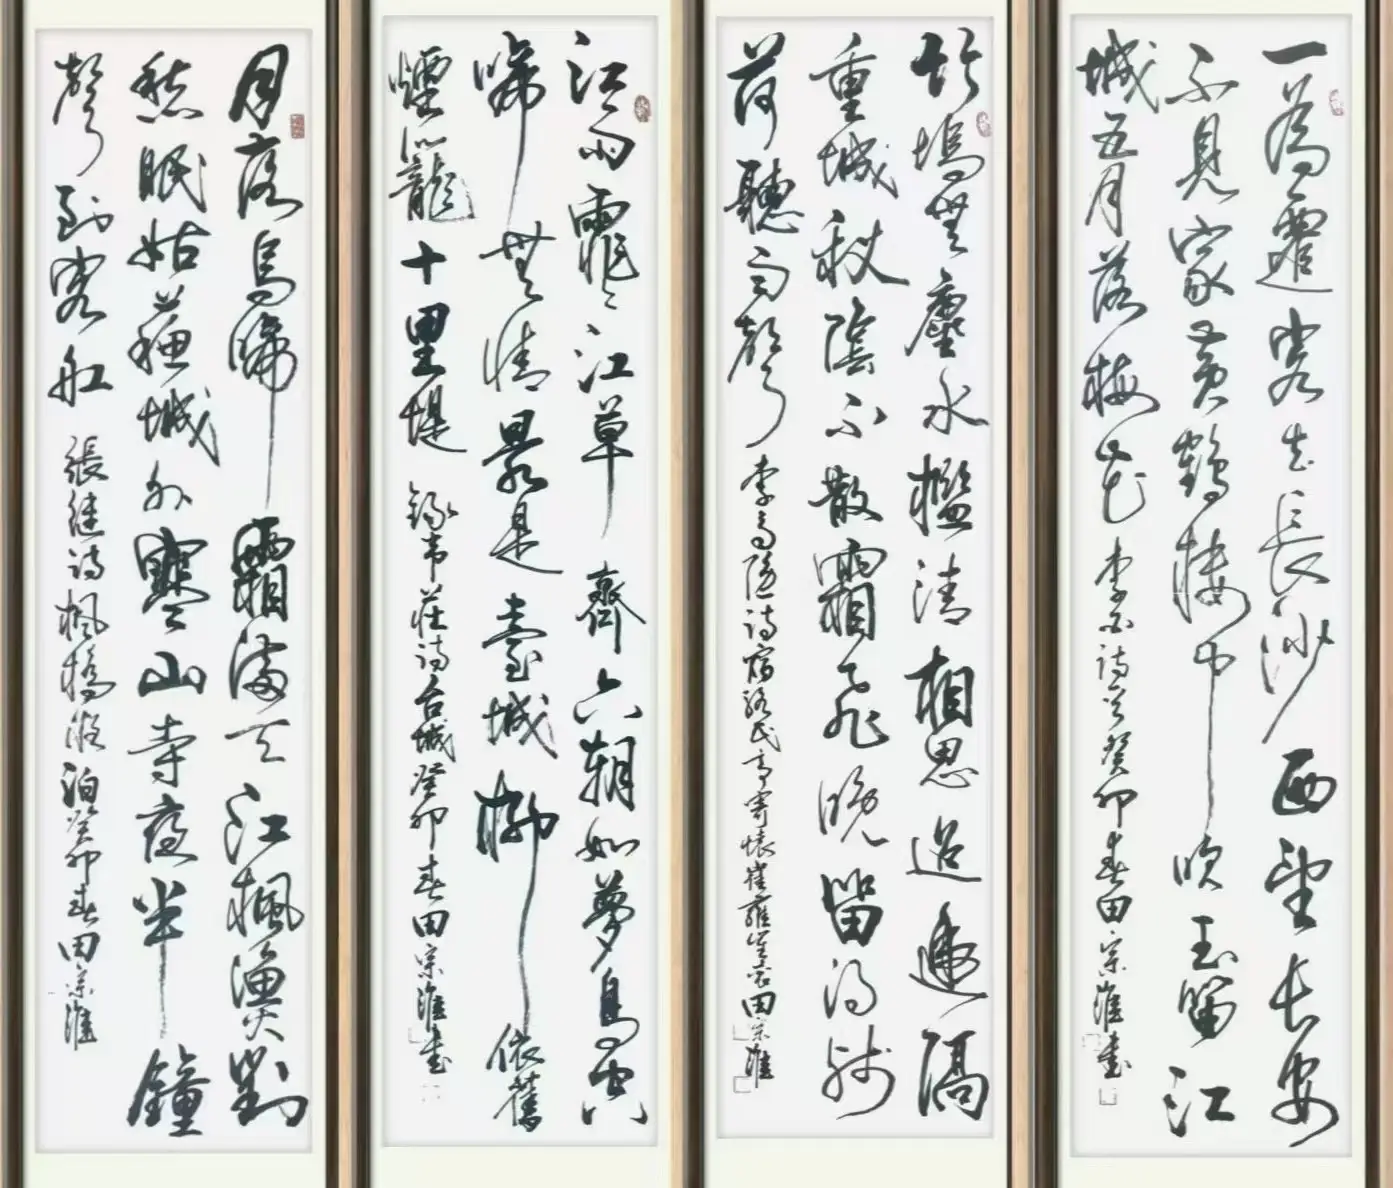 一為遷客去長沙西望長安
不見家黃鶴樓中吹玉笛江
城五月落梅花
李白詩首癸卯春田宗維書
竹塢無塵水檻清相思迢遞隔
重城秋陰不散霜飛晚留得枯
荷聽雨聲
李商隱詩宿駱氏亭寄懷崔雍崔袞田宗維
江雨霏〻江草齊六朝如夢鳥空
啼無情最是臺城柳依舊
煙籠十里堤
錄韋莊詩台城癸卯春田宗維書
月落烏啼霜滿天江楓漁火對
愁眠姑蘇城外寒山寺夜半鐘
聲到客船
張繼詩楓橋夜泊癸卯春田宗維